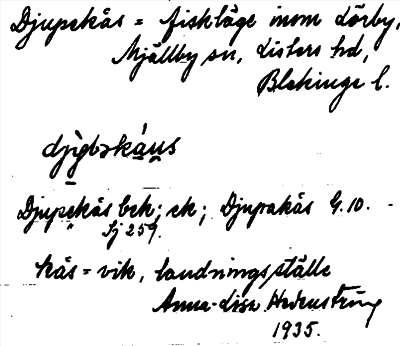 Djupekås = fiskläge inom Lörby,
Mjällby sn, Listers hd,
Blekinge l.
djùpəkáus
Djupekås bek; ek; Djupakås G.10.
Sj 259.
kås = vik, landningsställe
Anna-Lisa Hedenström
1935.